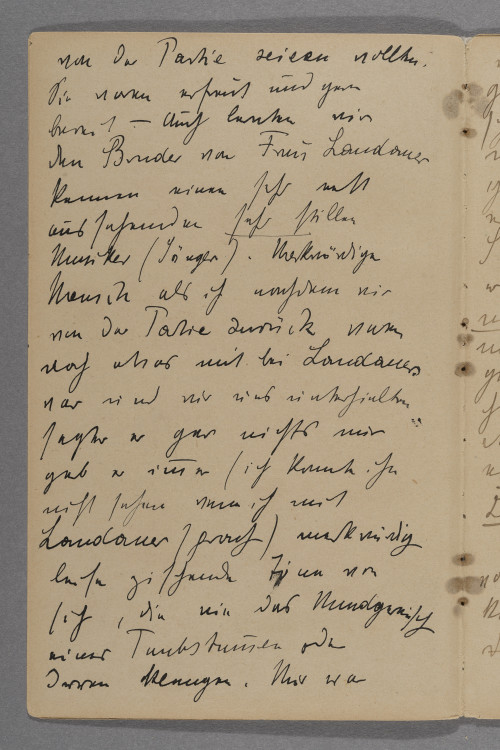 von der Partie seien wollten.
Sie waren erfreut und gern
bereit – Auch lernten wir
den Bruder von Frau Landauer
kennen einen sehr nett
aussehenden sehr stillen
Musiker (Sänger). Merkwürdiger
Mensch als ich nachdem wir
von der Partie zurück waren
noch etwas mit bei Landauers
war und wir uns unterhielten
sagte er gar nichts nur
gab er immer (ich konnte ihn
nicht sehen wenn ich mit
Landauer sprach) merkwürdig
leise zischende Töne von
sich, die wie das Mundgeräusch
eines Taubstummen oder
Irren klangen. Mir war